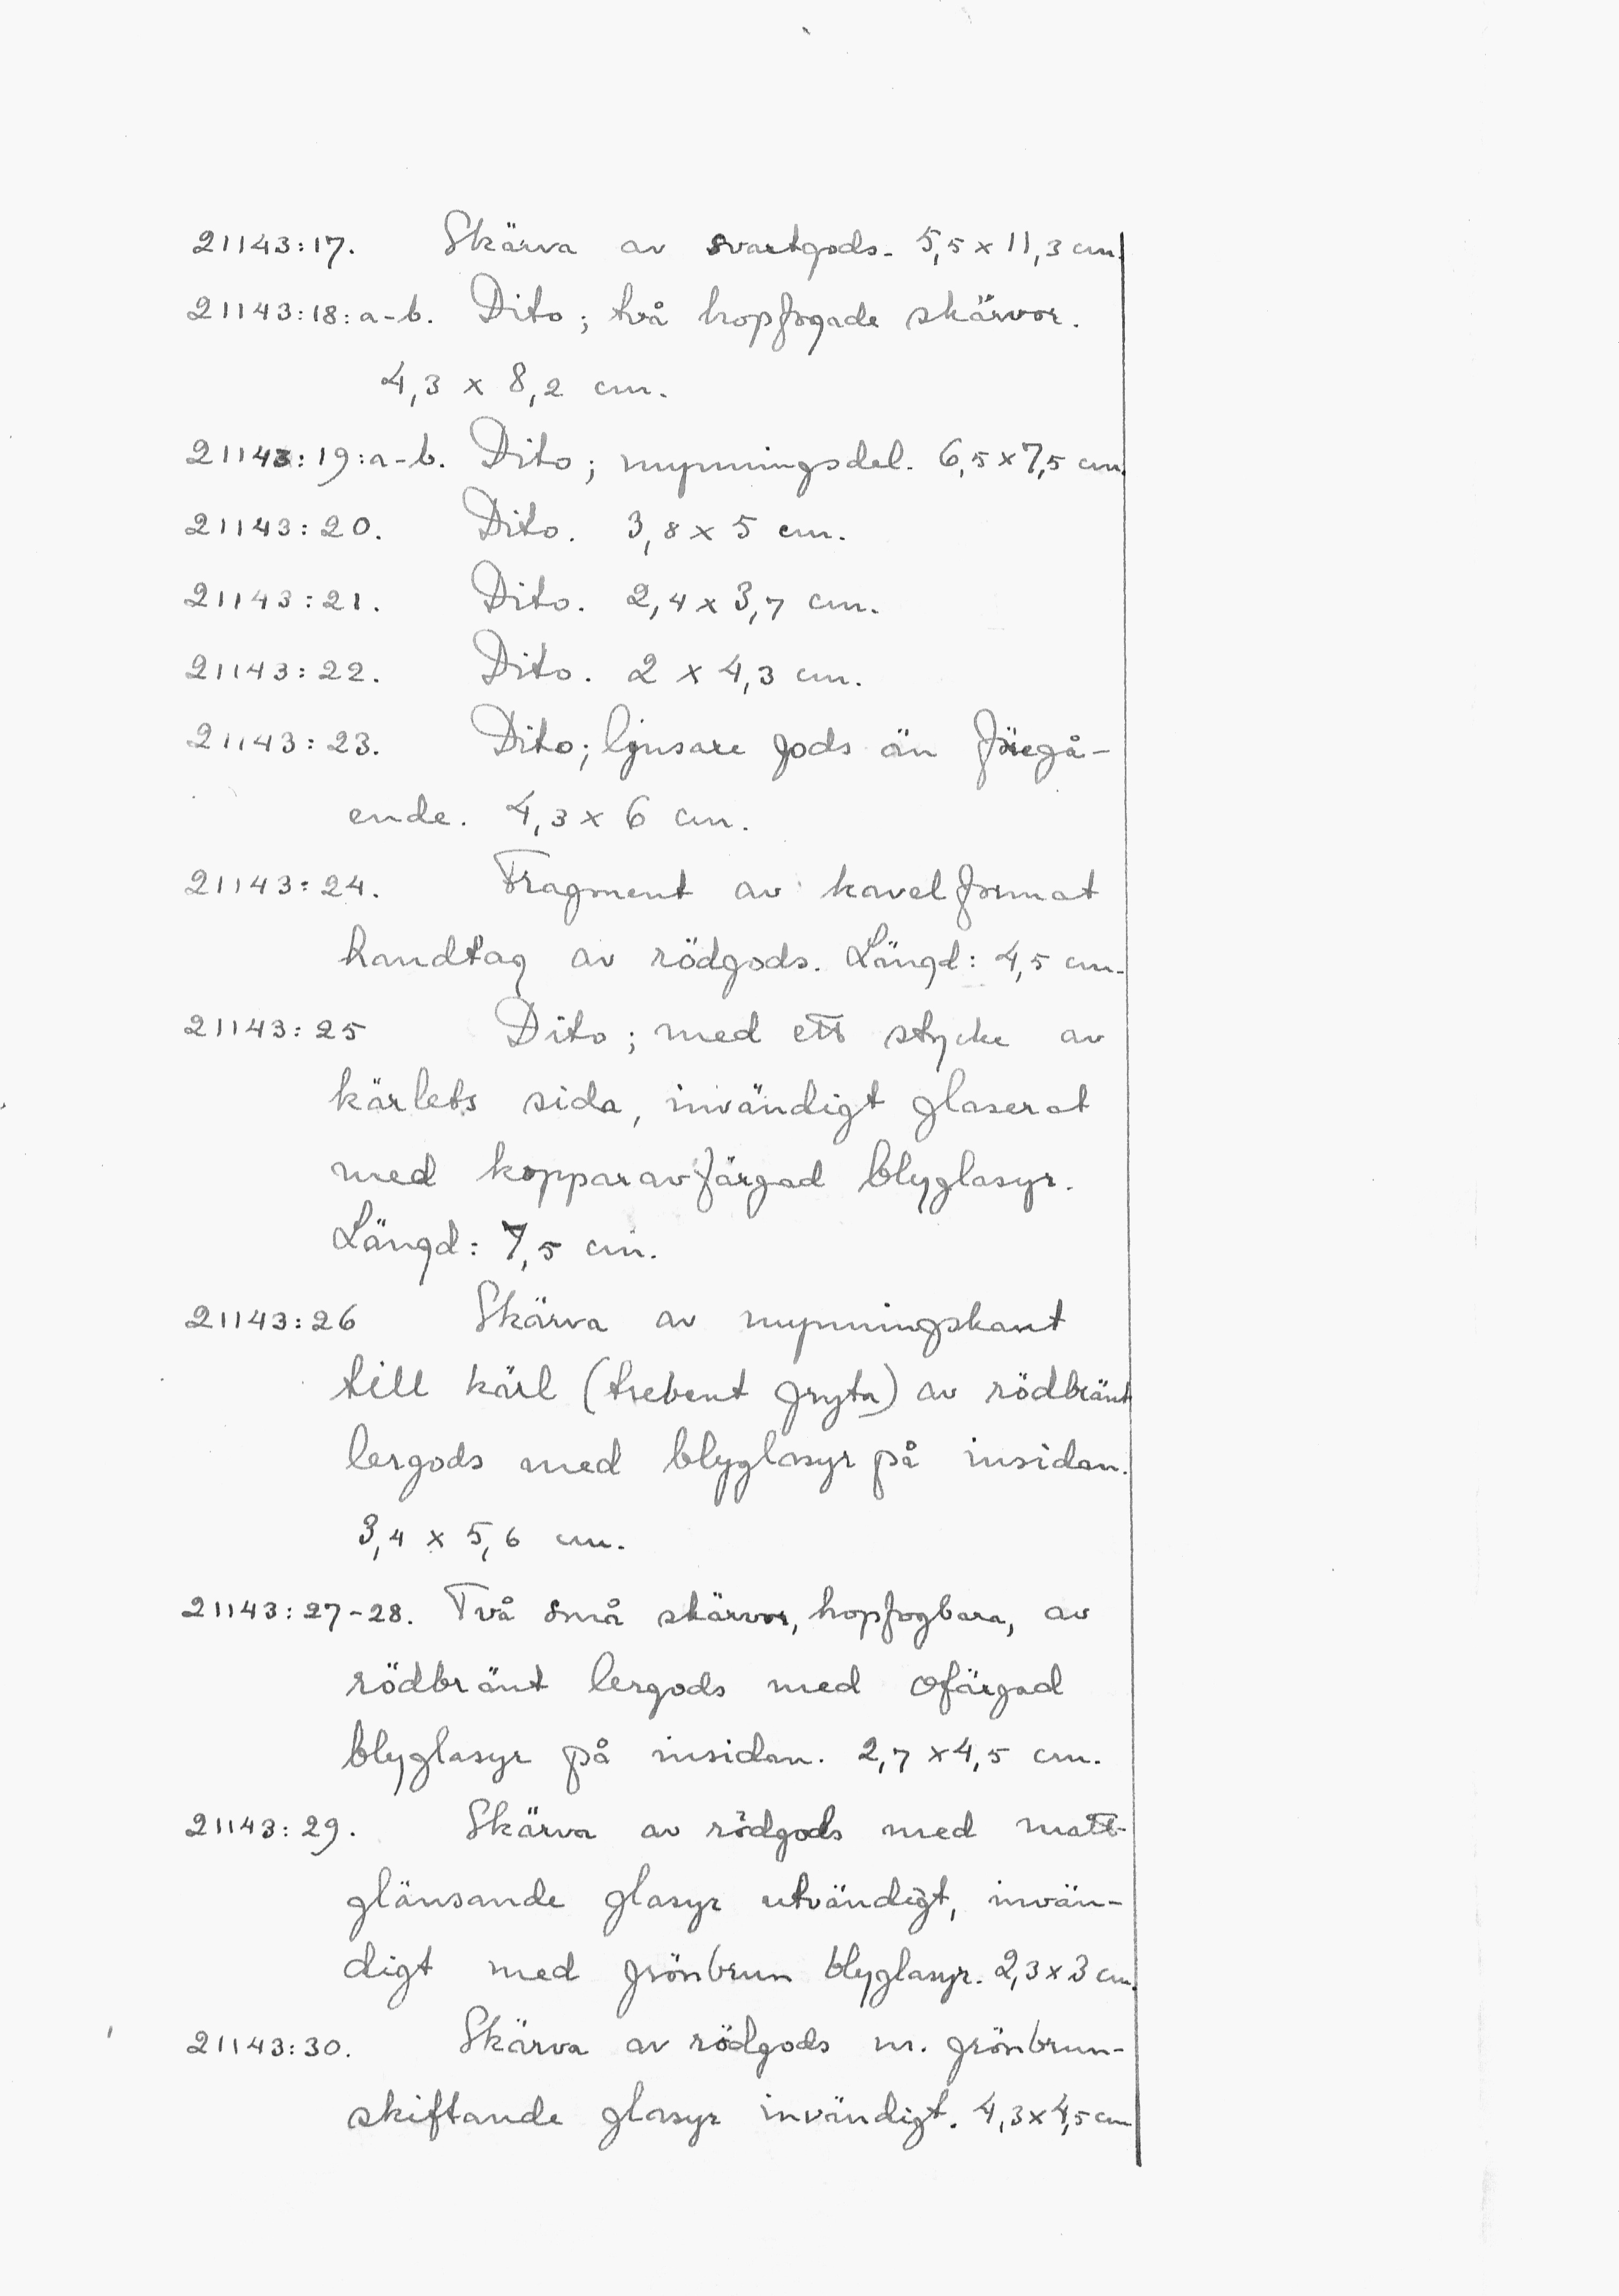 21143:17. Skärva av svartgods. 5,5 x 11,3 cm.
21143:18:a-b. Dito; två hopfogade skärvor.
4,3 x 8,2 cm.
21143:19:a-b. Dito; mynningsdel. 6,5 x 7,5 cm.
21143:20. Dito. 3,8 x 5 cm.
21143:21. Dito. 2,4 x 3,7 cm.
21143:22. Dito. 2 x 4,3 cm.
21143:23. Dito; ljusare gods än föregå-
ende. 4,3 x 6 cm.
21143:24. Fragment av kavelformat
handtag av rödgods. Längd: 4,5 cm.
21143:25 Dito; med ett stycke av
kärlets sida, invändigt glaserat
med kopparavfärgad blyglasyr.
Längd: 7,5 cm.
21143:26 Skärva av mynningskant
till kärl (trebent gryta) av rödbränt
lergods med blyglasyr på insidan.
3,4 x 5,6 cm.
21143:27-28. Två små skärvor, hopfogbara, av
rödbränt lergods med ofärgad
blyglasyr på insidan. 2,7 x 4,5 cm.
21143:29. Skärva av rödgods med matt-
glänsande glasyr utvändigt, invän-
digt med grönbrun blyglasyr. 2,3 x 3 cm.
21143:30. Skärva av rödgods m. grönbrun-
skiftande glasyr invändigt. 4,3 x 4,5 cm